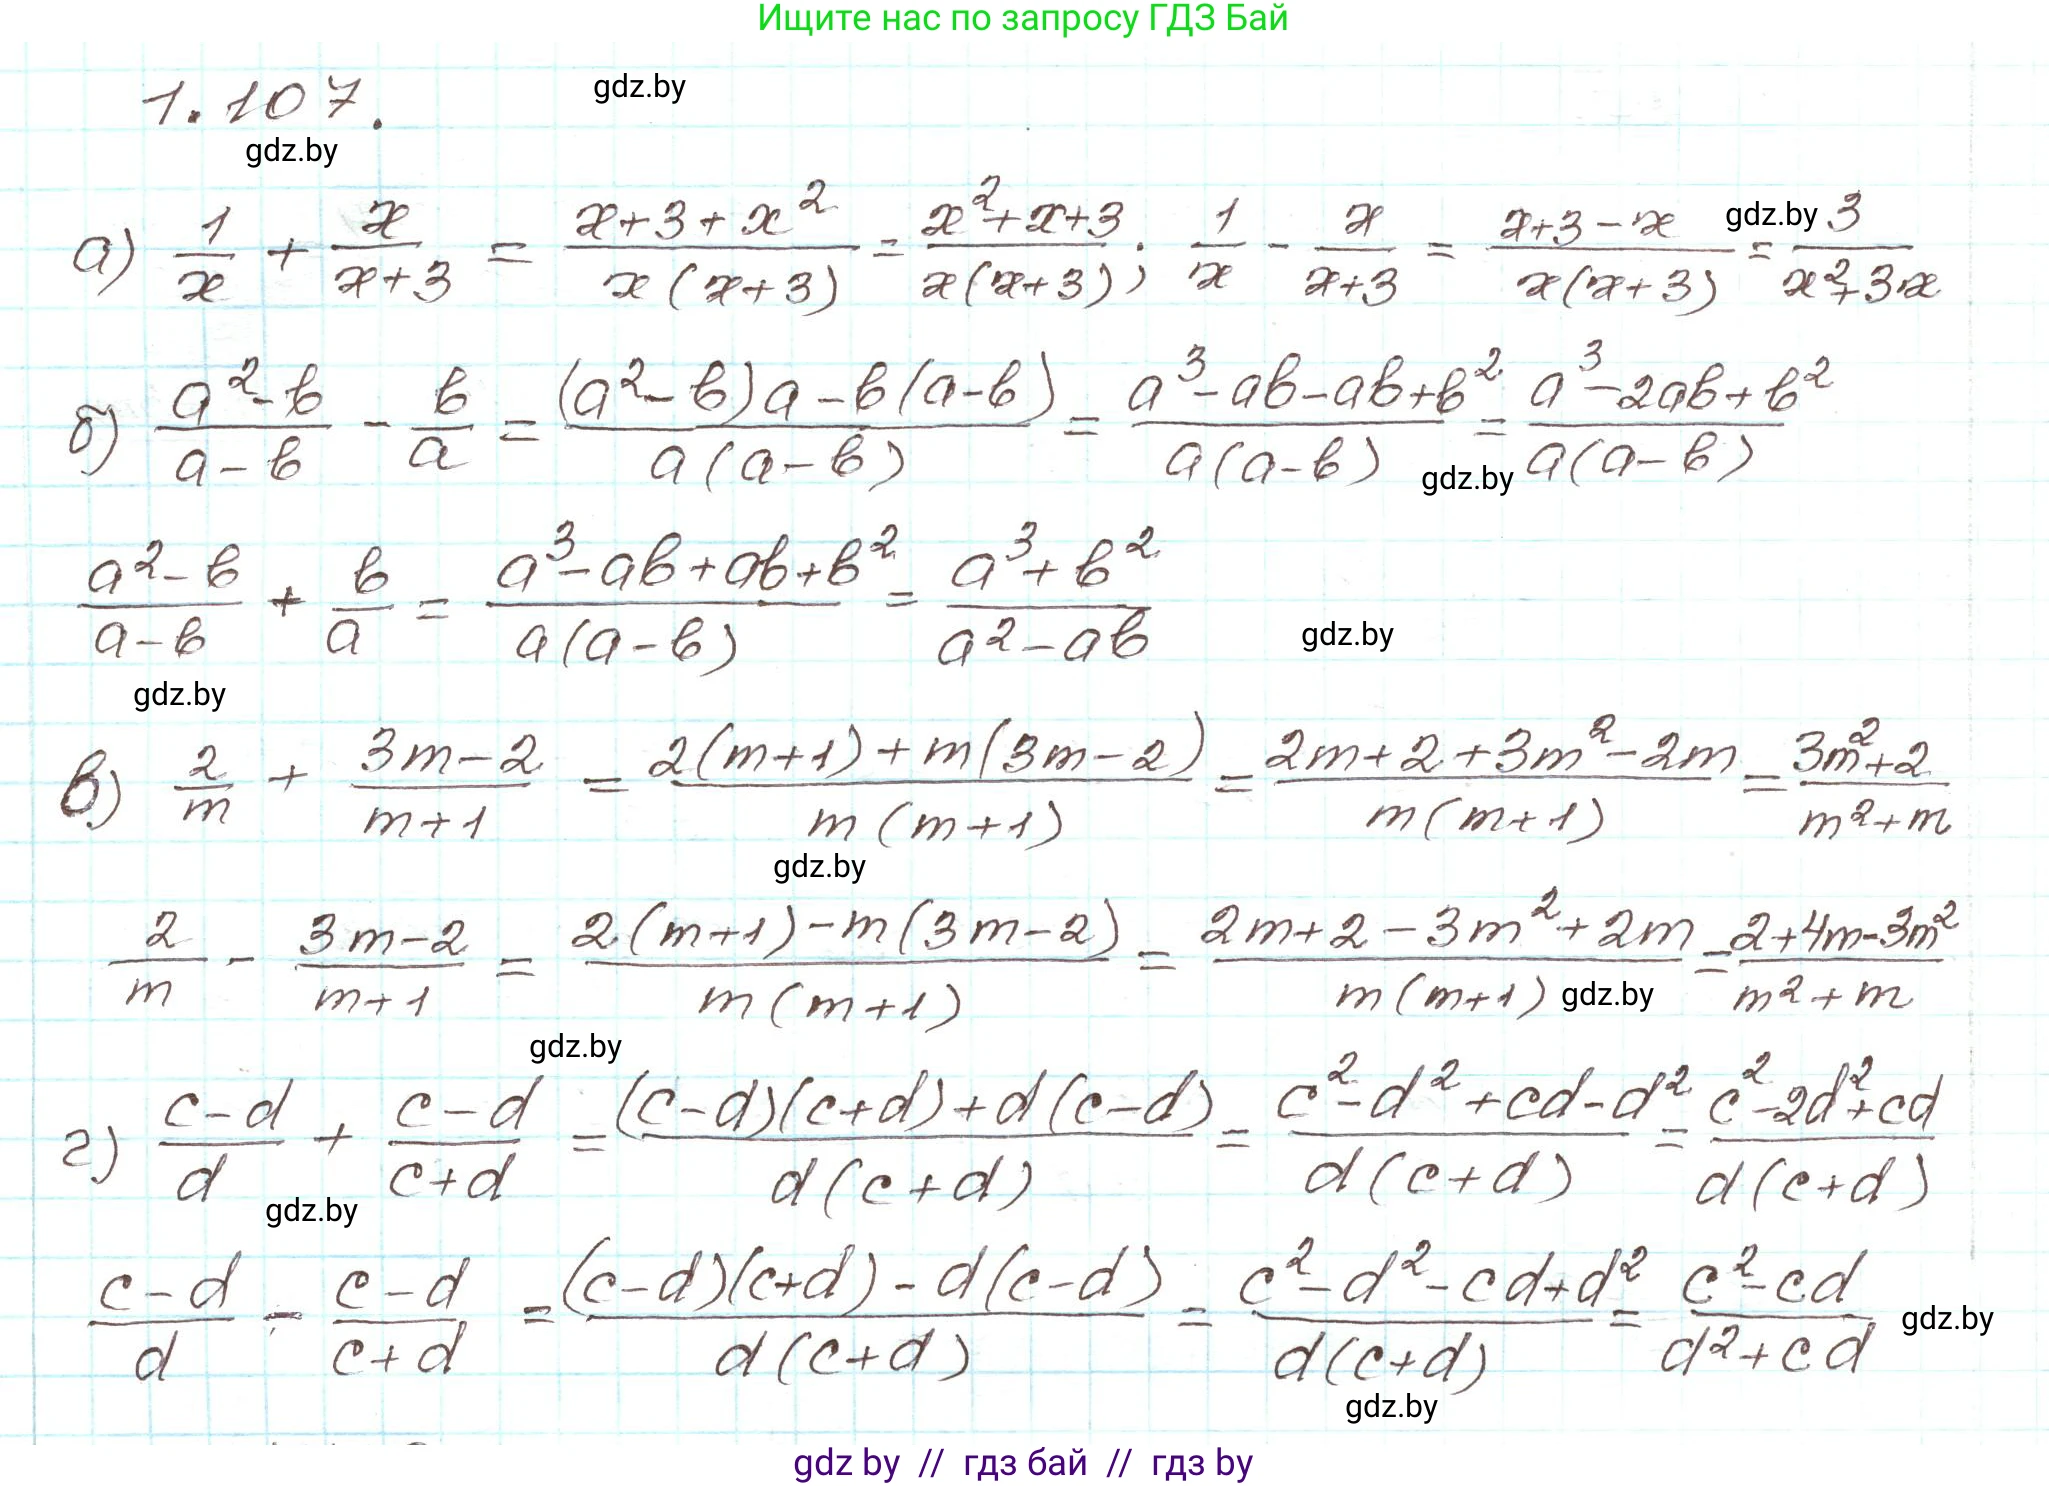 Ищите нас по запросу ГДЗ Бай
1.107. gdz.by
gdz.by
а) 1/x + x/(x+3) = (x+3+x²)/(x(x+3)) = (x²+x+3)/(x(x+3)); 1/x - x/(x+3) = (x+3-x)/(x(x+3)) = 3/(x²+3x) gdz.by
б) (a²-b)/(a-b) - b/a = ((a²-b)a-b(a-b))/(a(a-b)) = (a³-ab-ab+b²)/(a(a-b)) = (a³-2ab+b²)/(a(a-b)) gdz.by
(a²-b)/(a-b) + b/a = (a³-ab+ab+b²)/(a(a-b)) = (a³+b²)/(a²-ab) gdz.by
gdz.by
в) 2/m + (3m-2)/(m+1) = (2(m+1)+m(3m-2))/(m(m+1)) = (2m+2+3m²-2m)/(m(m+1)) = (3m²+2)/(m²+m)
gdz.by
2/m - (3m-2)/(m+1) = (2(m+1)-m(3m-2))/(m(m+1)) = (2m+2-3m²+2m)/(m(m+1)) = (2+4m-3m²)/(m²+m) gdz.by
gdz.by
г) (c-d)/d + (c-d)/(c+d) = ((c-d)(c+d)+d(c-d))/(d(c+d)) = (c²-d²+cd-d²)/(d(c+d)) = (c²-2d²+cd)/(d(c+d))
gdz.by
(c-d)/d - (c-d)/(c+d) = ((c-d)(c+d)-d(c-d))/(d(c+d)) = (c²-d²-cd+d²)/(d(c+d)) = (c²-cd)/(d²+cd) gdz.by
gdz.by
gdz by // гдз бай // гдз by